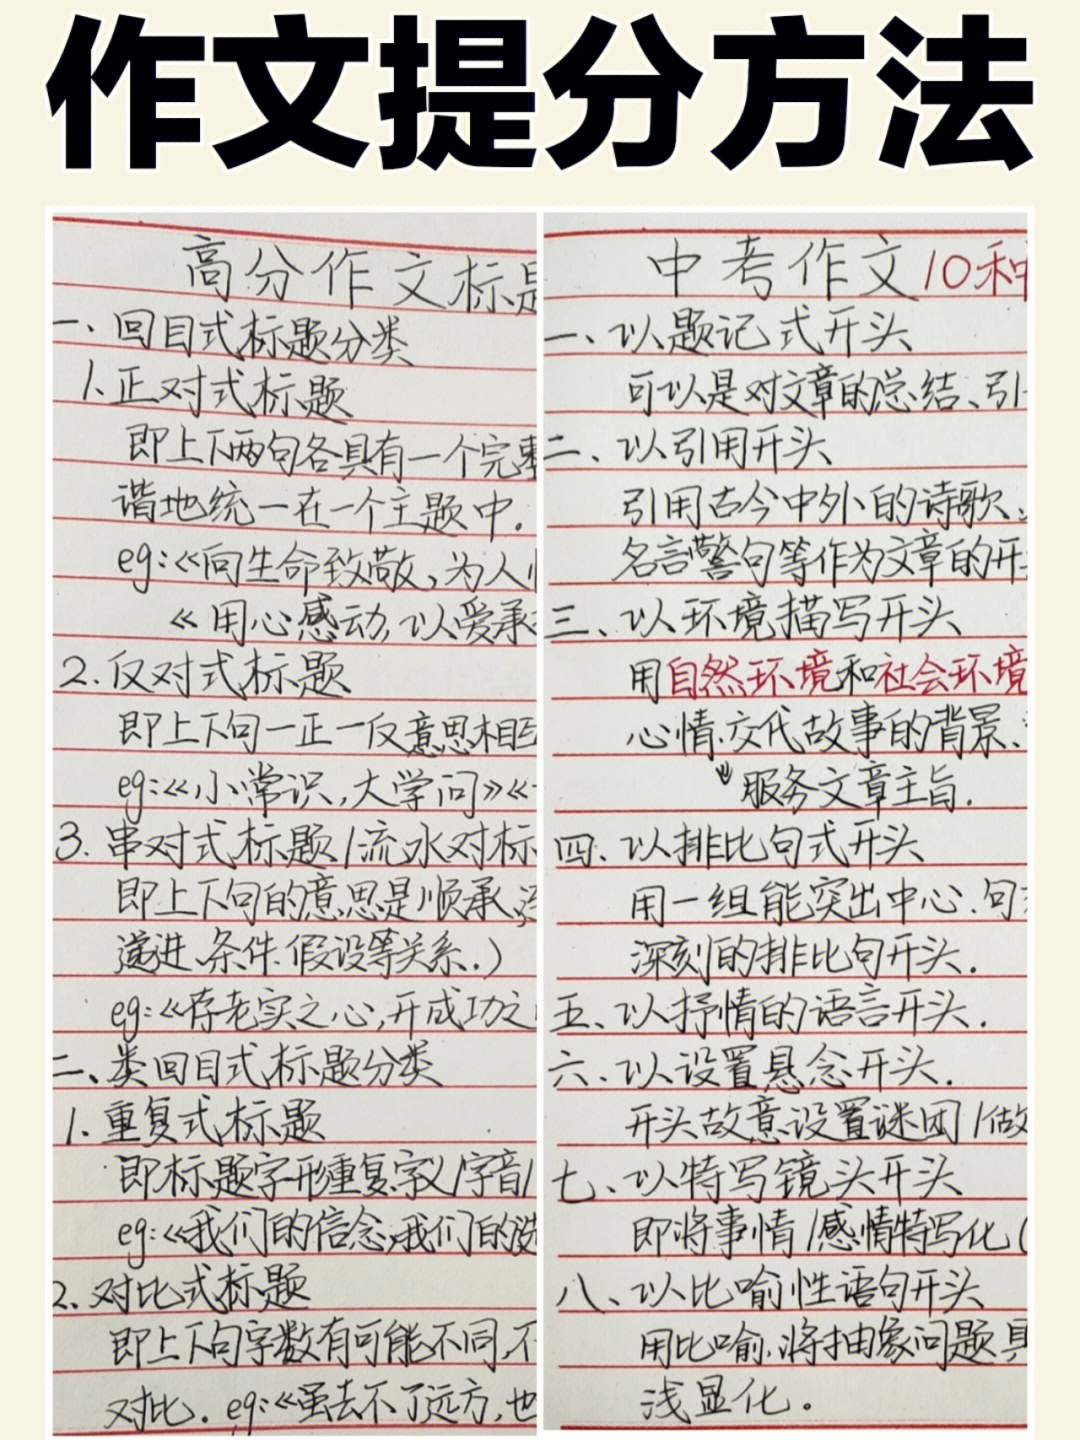 作文提分方法
高分作文标题
一、回目式标题分类
1.正对式标题
即上下两句各具有一个完整
谐地统一在一个主题中.
eg:《向生命致敬,为人
《用心感动,以爱承
2.反对式标题
即上下句一正一反意思相
eg:《小常识,大学问》《
3.串对式标题/流水对标
即上下句的意思是顺承、
递进、条件.假设等关系.)
eg:《存老实之心,开成功之
二、类回目式标题分类
1.重复式标题
即标题字形重复字义/字音/
eg:《我们的信念,我们的
2.对比式标题
即上下句字数有可能不同,不
对比. eg:《虽去不了远方,也
中考作文10种
一、以题记式开头
可以是对文章的总结、引
二、以引用开头
引用古今中外的诗歌、
名言警句等作为文章的开
三、以环境描写开头
用自然环境和社会环境
心情.交代故事的背景、
服务文章主旨.
四、以排比句式开头
用一组能突出中心.句
深刻的排比句开头.
五、以抒情的语言开头.
六、以设置悬念开头.
开头故意设置谜团/做
七、以特写镜头开头
即将事情/感情特写化(
八、以比喻性语句开头
用比喻.将抽象问题具
浅显化。